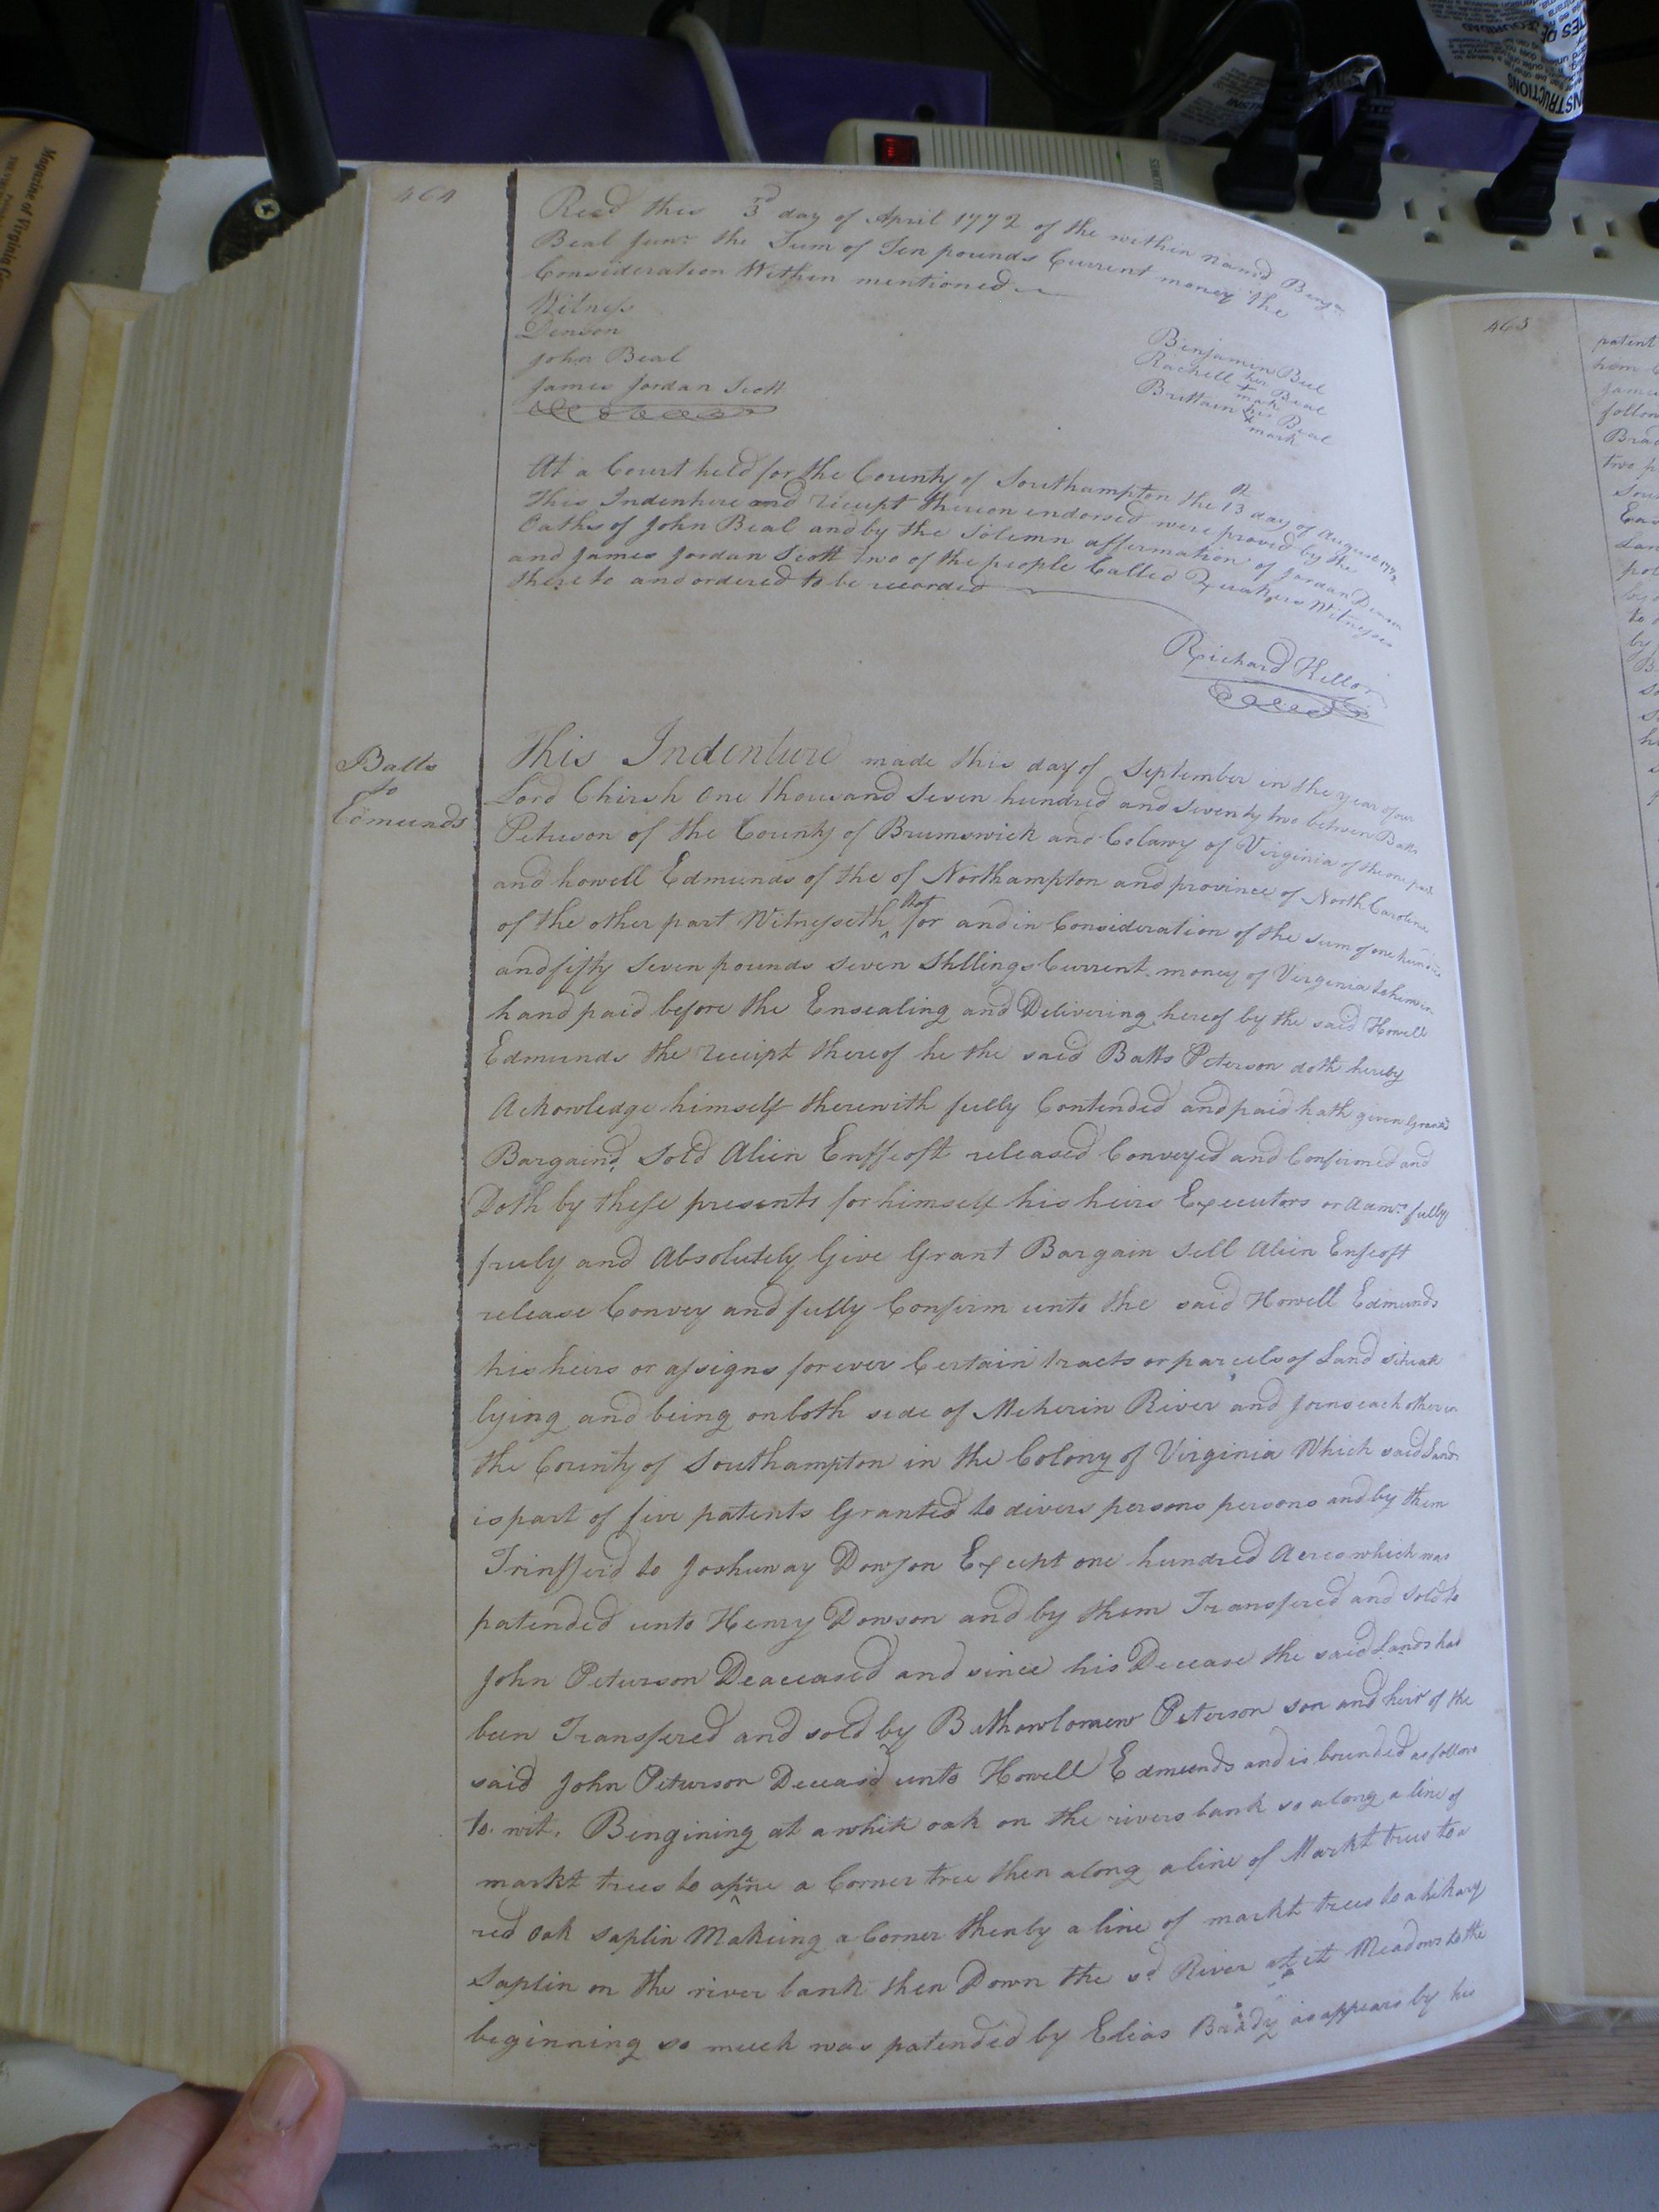 464
Recd this 3rd day of April 1772 of the within namd Benja
Beal Junr the Sum of Ten pounds Current money the
Consideration Within mentioned
Witness
Denson
John Beal
James Jordan Scott
Benjamin Beel
Rachell her Beal
mark
Brittain his Beal
mark
At a Court held for the County of Southampton the 13 day of August 1772
This Indenture and receipt thereon endorsed were proved by the
Oaths of John Beal and by the Solemn affermation of Jordan Denson
and James Jordan Scott two of the people Called Quakers Witnesses
thereto and ordered to be recorded
Richard Kello
Batts
to
Edmunds
This Indenture made this day of September in the year of our
Lord Chirsh One thousand Seven hundred and seventy two between Batts
Peterson of the County of Brumswick and Colawy of Virginia of the one part
and howell Edmunds of the of Northampton and province of North Carolina
of the other part Witnesseth that for and in Consideration of the sum of one hundred
and fifty Seven pounds seven Shllings Current money of Virginia to him in
hand paid before the Ensealing and Delivering hereof by the said Howell
Edmunds the receipt thereof he the said Batts Peterson doth hereby
Acknowledge himself therewith fully Contended and paid hath given Granted
Bargaind Sold Alien Enffeoft released Conveyed and Confirmed and
Doth by these presents for himself his heirs Executors or Admrs fully
freely and Absolutely Give Grant Bargain Sell Alien Enfeoft
release Convey and fully Confirm unto the said Howell Edmunds
his heirs or assigns forever Certain tracts or parcels of Land situate
lying and being on both side of Meherin River and Joins each other in
the County of Southampton in the Colony of Virginia Which said Lands
is part of five patents Granted to divers persons persons and by them
Trinsferd to Joshuway Dowson Except one hundred Acres which was
patended unto Henry Dowson and by them Transfered and sold to
John Peturson Deaceased and since his Decease the said Lands had
been Transfered and sold by Bathowlomew Peterson son and heir of the
said John Peturson Deceasd unto Howell Edmunds and is bounded as follows
to wit. Bengining at a white oak on the rivers bank so along a line of
markt trees to apine a Corner tree then along a line of Markt trees to a
red Oak saplin Makeing a Corner then by a line of markt trees to a hikary
Saplin on the river bank then Down the sd River as it Meadows to the
beginning so much was patended by Elias Brady as appears by his
465
patent
him
James
follow
Brad
two p
Sou
Eas
Lan
pol
to
by
Magazine of Virginia G
INSTRUCTIONS